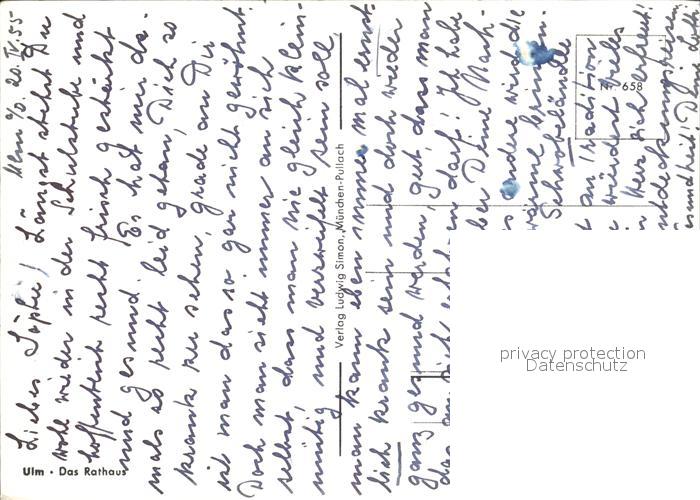 Ulm a/D. 20.IV.55-
Lieber Söphle! Längst stehst Du
wohl wieder in der Schulstube und
hoffentlich recht frisch gestärkt
und gesund. Es hat mir da-
mals so recht leid getan, Dich so
krank zu sehen, grade an Dir
ist man das so gar nicht gewöhnt.
Doch man sieht immer an sich
selbst, dass man nie gleich klein-
mütig und verzweifelt sein soll,
man kann eben immer mal ernst-
lich krank sein und doch wieder
ganz gesund werden, gut, dass man
das an sich
n darf! Ich habe
ber Deine Nach-
s andere wird die
wärme bringen.
Schwobeländle
Tradition
würdest vieles
Herz sich erfreut!
Ulm · Das Rathaus
Verlag Ludwig Simon, München-Pullach
Nr. 658
privacy protection
Datenschutz